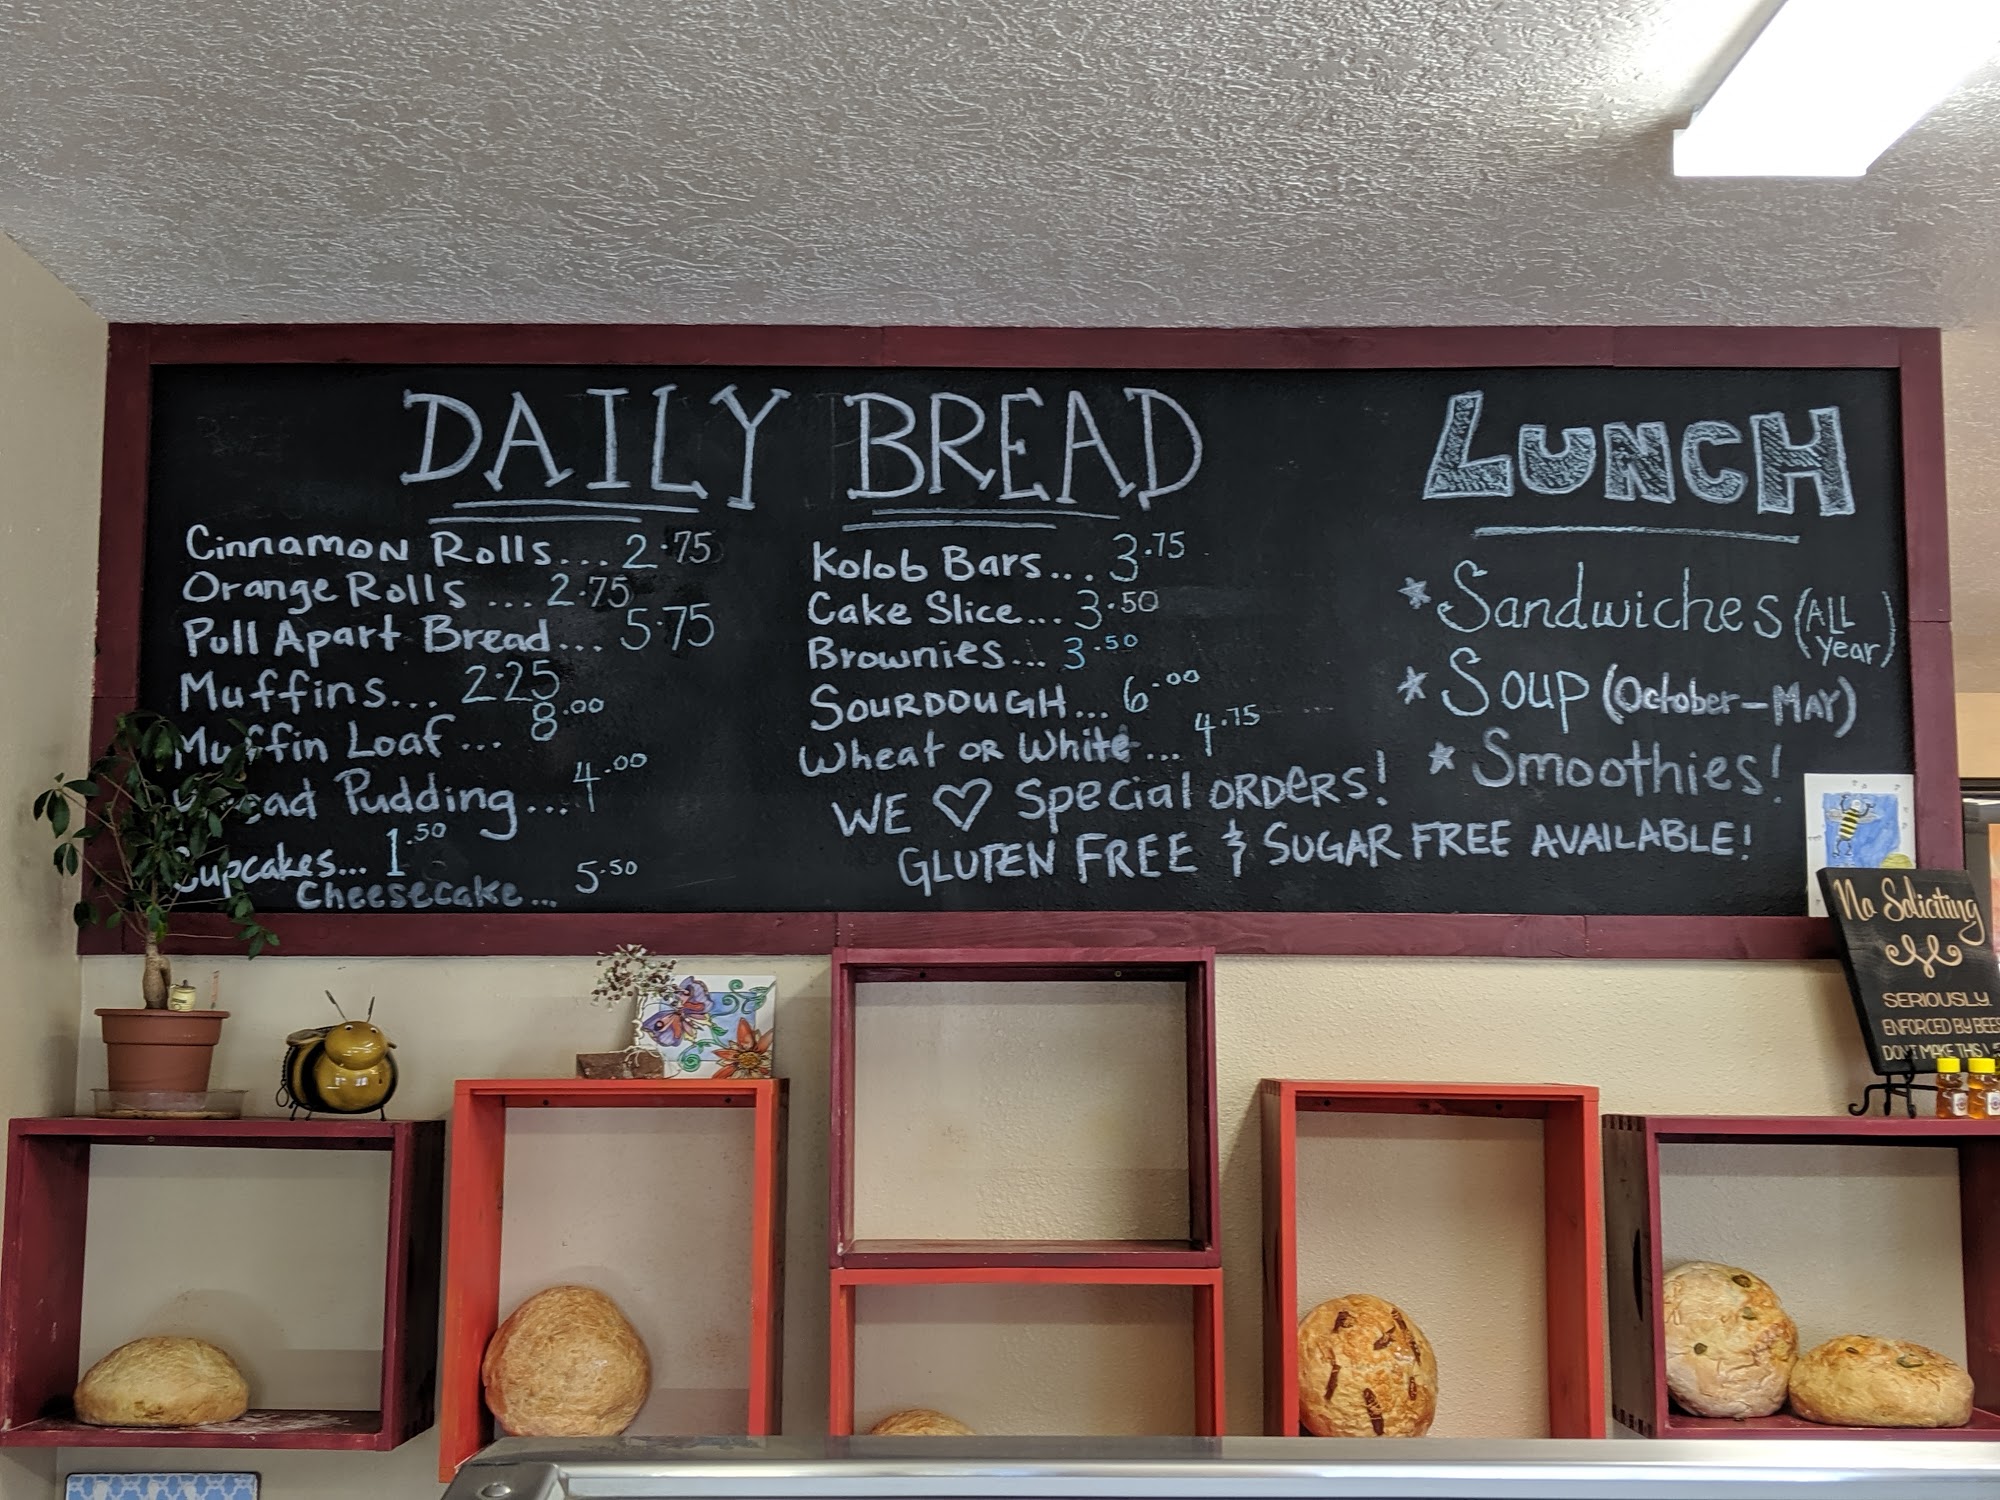 DAILY BREAD
Cinnamon Rolls... 2.75
Orange Rolls ... 2.75
Pull Apart Bread... 5.75
Muffins... 2.25
Muffin Loaf ... 8.00
Bread Pudding... 4.00
Cupcakes... 1.50
Cheesecake... 5.50
Kolob Bars... 3.75
Cake Slice... 3.50
Brownies... 3.50
SOURDOUGH... 6.00
Wheat or White... 4.75
WE ♡ Special ORDERS!
GLUTEN FREE & SUGAR FREE AVAILABLE!
LUNCH
* Sandwiches (ALL year)
* Soup (October-MAY)
* Smoothies!
No Soliciting
SERIOUSLY.
ENFORCED BY BEES
DON'T MAKE THIS